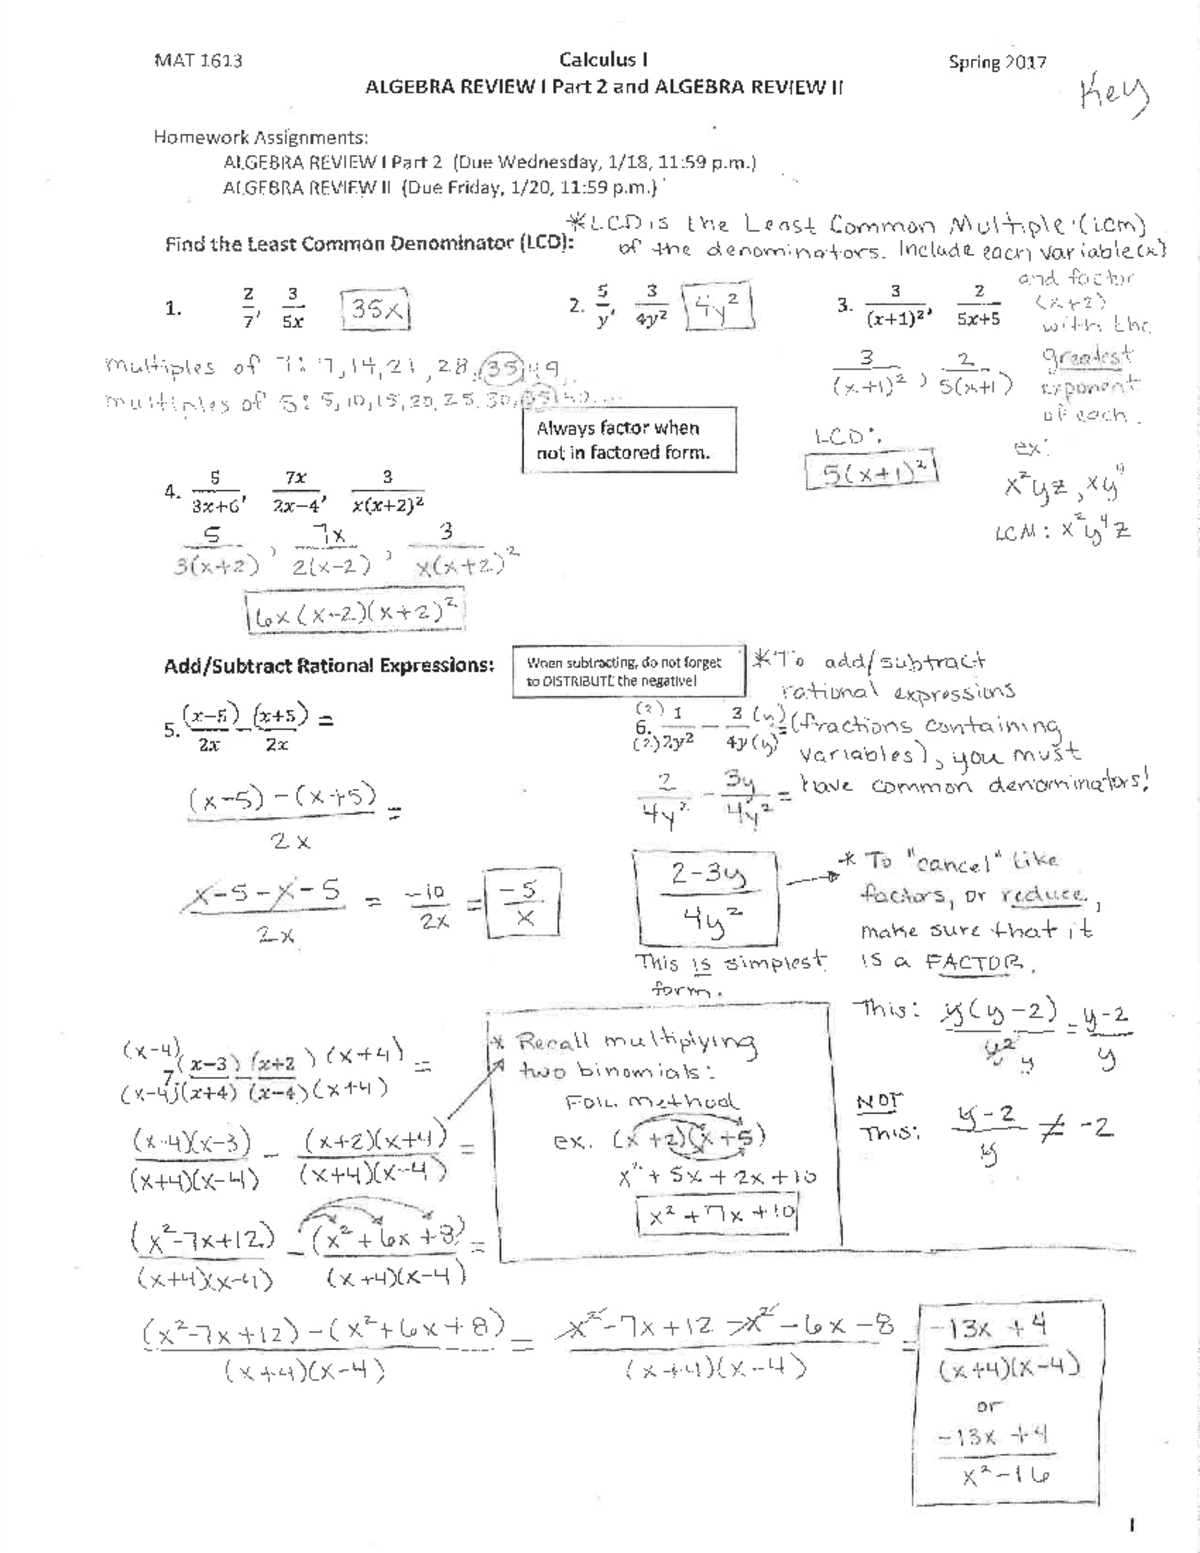 MAT 1613 Calculus I Spring 2017
ALGEBRA REVIEW I Part 2 and ALGEBRA REVIEW II
Key
Homework Assignments:
ALGEBRA REVIEW I Part 2 (Due Wednesday, 1/18, 11:59 p.m.)
ALGEBRA REVIEW II (Due Friday, 1/20, 11:59 p.m.)
Find the Least Common Denominator (LCD):
*LCD is the Least Common Multiple (lcm)
of the denominators. Include each variable (x)
and factor
(x+2)
with the
greatest
exponent
of each.
ex:
x²yz, xy⁴
LCM: x²y⁴z
1. 2/7, 3/5x 35x
multiples of 7: 7, 14, 21, 28, 35, 49
multiples of 5: 5, 10, 15, 20, 25, 30, 35, 40...
2. 5/y, 3/4y² 4y²
3. 3/(x+1)², 2/5x+5
3/(x+1)², 2/5(x+1)
LCD:
5(x+1)²
Always factor when
not in factored form.
4. 5/3x+6, 7x/2x−4, 3/x(x+2)²
5/3(x+2), 7x/2(x−2), 3/x(x+2)²
6x(x−2)(x+2)²
Add/Subtract Rational Expressions:
When subtracting, do not forget
to DISTRIBUTE the negative!
*To add/subtract
rational expressions
(fractions containing
variables), you must
have common denominators!
5. (x−5)/2x − (x+5)/2x =
(x−5)−(x+5)/2x =
x−5−x−5/2x = −10/2x = −5/x
6. (2)1/(2)2y² − 3(y)/4y(y) =
2/4y² − 3y/4y² =
2−3y/4y²
This is simplest
form.
* To "cancel" like
factors, or reduce,
make sure that it
is a FACTOR.
This: y(y−2)/y² = y−2/y
y
NOT
This: y−2/y ≠ −2
7. (x−4)(x−3)/(x−4)(x+4) − (x+2)(x+4)/(x−4)(x+4) =
(x−4)(x−3)/(x+4)(x−4) − (x+2)(x+4)/(x+4)(x−4) =
(x²−7x+12)/(x+4)(x−4) − (x²+6x+8)/(x+4)(x−4) =
(x²−7x+12)−(x²+6x+8)/(x+4)(x−4) = x²−7x+12−x²−6x−8/(x+4)(x−4) = −13x+4/(x+4)(x−4)
or
−13x+4/x²−16
* Recall multiplying
two binomials:
FOIL method
ex. (x+2)(x+5)
x²+5x+2x+10
x²+7x+10
1